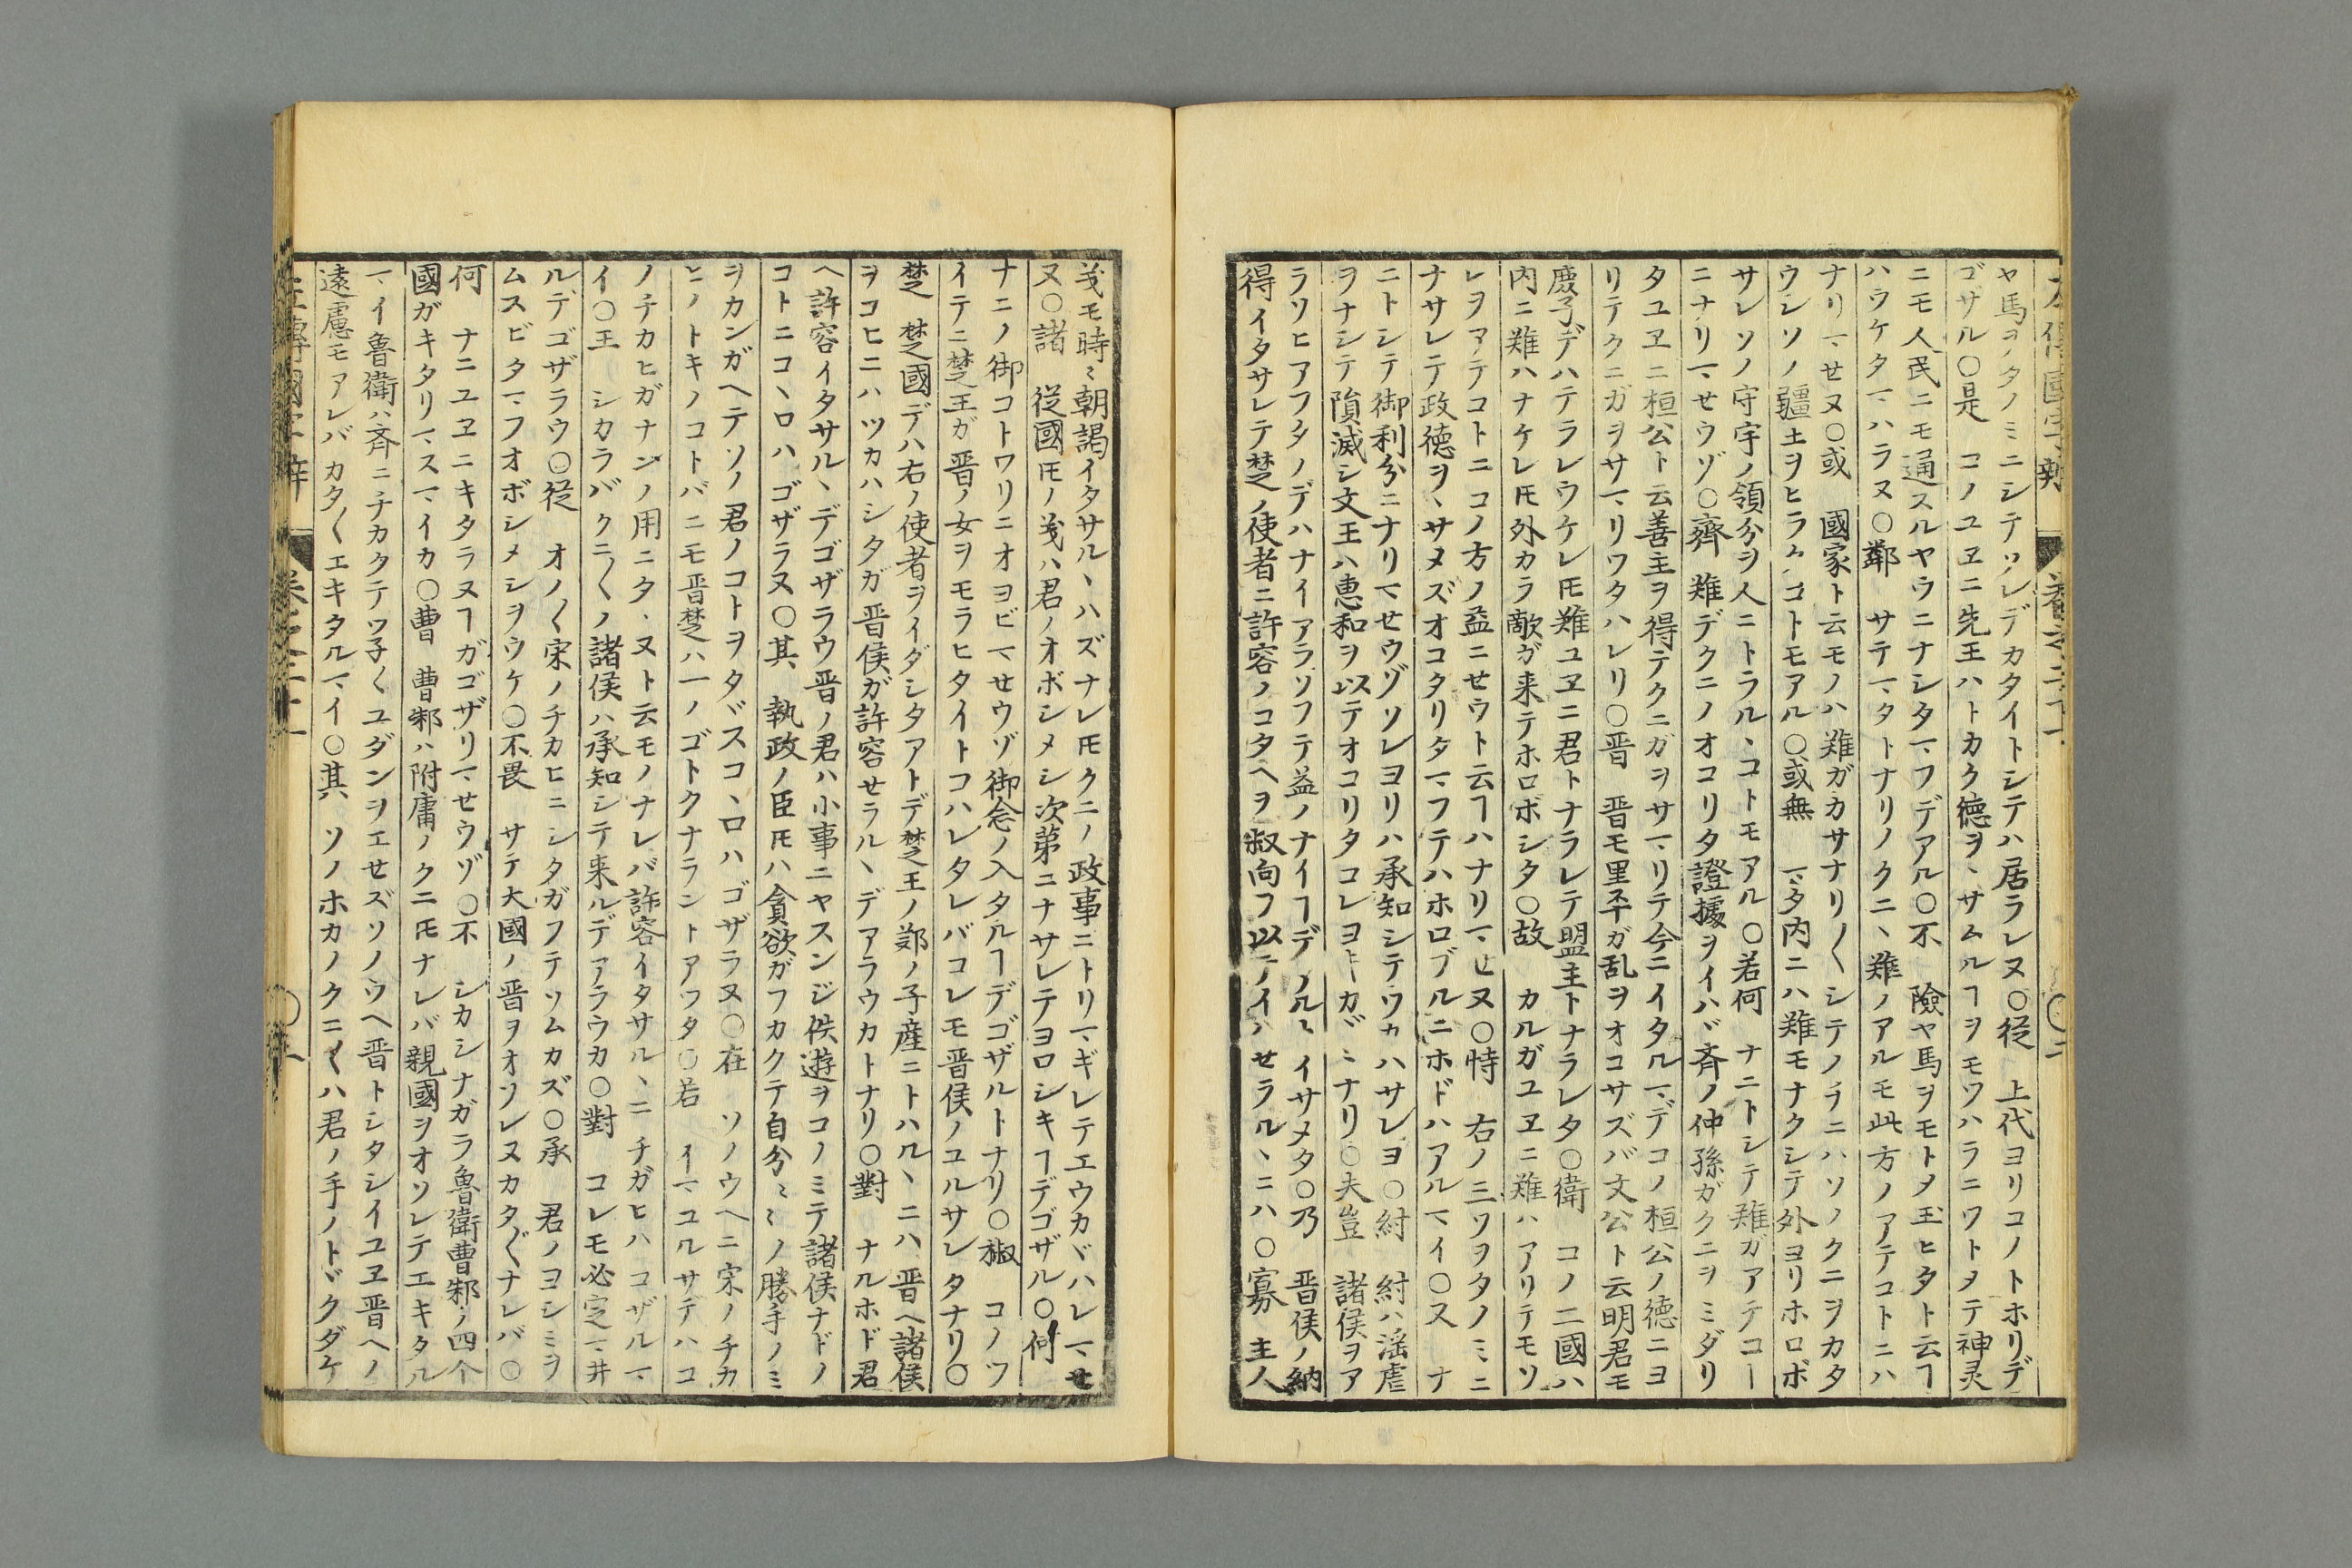 ヤ馬ヲノタノミニシテソレデカタイトシテハ居ラレヌ〇従　上代ヨリコノトホリデ
ゴザル〇是　コノユヱニ先王ハトカク徳ヲヽサムルヿヲモツハラニツトメテ神灵
ニモ人民ニモ通スルヤウニナシタマフデアル〇不　險ヤ馬ヲモトメ玉ヒタト云ヿ
ハウケタマハラヌ〇鄰　サテマタトナリノクニヽ難ノアルモ此方ノアテコトニハ
ナリマせヌ〇或　國家ト云モノハ難ガカサナリ〱シテノチニハソノクニヲカタ
ウシソノ疆土ヲヒラクコトモアル〇或無　マタ内ニハ難モナクシテ外ヨリホロボ
サレソノ守宇ノ領分ヲ人ニトラルヽコトモアル〇若何　ナニトシテ難ガアテコー
ニナリマせウゾ〇齊　難デクニノオコリタ證據ヲイハヾ斉ノ仲孫ガクニヲミダリ
タユヱニ桓公ト云善主ヲ得テクニガヲサマリテ今ニイタルマデコノ桓公ノ徳ニヨ
リテクニガヲサマリワタハレリ〇晋　晋モ里㔻ガ乱ヲオコサズバ文公ト云明君モ
慶子デハテラレウケレ𪜈難ユヱニ君トナラレテ盟主トナラレタ〇衛　コノ二國ハ
内ニ難ハナケレ𪜈外カラ敵ガ来テホロボシタ〇故　カルガユヱニ難ハアリテモソ
レヲアテコトニコノ方ノ益ニせウト云ヿハナリマせヌ〇恃　右ノ三ツヲタノミニ
ナサレテ政徳ヲヽサメズオコタリタマフテハホロブルニホドハアルマイ〇又　ナ
ニトシテ御利分ニナリマせウゾソレヨリハ承知シテツカハサレヨ〇紂　紂ハ淫虐
ヲナシテ隕滅シ文王ハ惠和ヲ以テオコリタコレヨトガミナリ〇夫豈　諸侯ヲア
ラソヒアフタノデハナイアラソフテ益ノナイヿデノルミイサメタ〇乃　晋侯ノ納
得イタサレテ楚ノ使者ニ許容ノコタヘヲ叔向フ以テイハせラルヽニハ〇寡　主人
〇二
𦮼モ時〻朝謁イタサルヽハズナレ𪜈クニノ政事ニトリマギレテエウカヾハレマせ
ヌ〇諸　従國𪜈ノ𦮼ハ君ノオボシメシ次第ニナサレテヨロシキヿデゴザル〇何
ナニノ御コトワリニオヨビマせウゾ御念ノ入タルヿデゴザルトナリ〇椒　コノツ
イテニ楚王ガ晋ノ女ヲモラヒタイトコハレタレバコレモ晋侯ノユルサレタナリ〇
楚　楚國デハ右ノ使者ヲイダシタアトデ楚王ノ鄭ノ子産ニトハルヽニハ晋ヘ諸侯
ヲコヒニハツカハシタガ晋侯ガ許容せラルヽデアラウカトナリ〇對　ナルホド君
ヘ許容イタサルヽデゴザラウ晋ノ君ハ小事ニヤスンジ佚遊ヲコノミテ諸侯ナドノ
コトニコヽロハゴザラヌ〇其　執政ノ臣𪜈ハ貪欲ガフカクテ自分〻〻ノ勝手ノミ
ヲカンガヘテソノ君ノコトヲタヾスコヽロハゴザラヌ〇在　ソノウヘニ宋ノチカ
ヒノトキノコトバニモ晋楚ハ一ノゴトクナラントアツタ〇若　イマユルサデハコ
ノチカヒガナンノ用ニタヽヌト云モノナレバ許容イタサルヽニチガヒハコザルマ
イ〇王　シカラバクニ〱ノ諸侯ハ承知シテ来ルデアラウカ〇對　コレモ必定マ井
ルデゴザラウ〇従　オノ〱宋ノチカヒニシタガフテソムカズ〇承　君ノヨシミヲ
ムスビタマフオボシメシヲウケ〇不畏　サテ大國ノ晋ヲオソレヌカタ〲ナレバ〇
何　ナニユヱニキタラヌヿガゴザリマせウゾ〇不　シカシナガラ魯衛曹邾ノ四个
國ガキタリマスマイカ〇曹　曹邾ハ附庸ノクニ𪜈ナレバ親國ヲオソレテエキタル
マイ魯衛ハ斉ニチカクテツ子〱ユダンヲエせズソノウヘ晋トシタシイユヱ晋ヘノ
遠慮モアレバカタ〱エキタルマイ〇其　ソノホカノクニ〱ハ君ノ手ノトヾクダケ